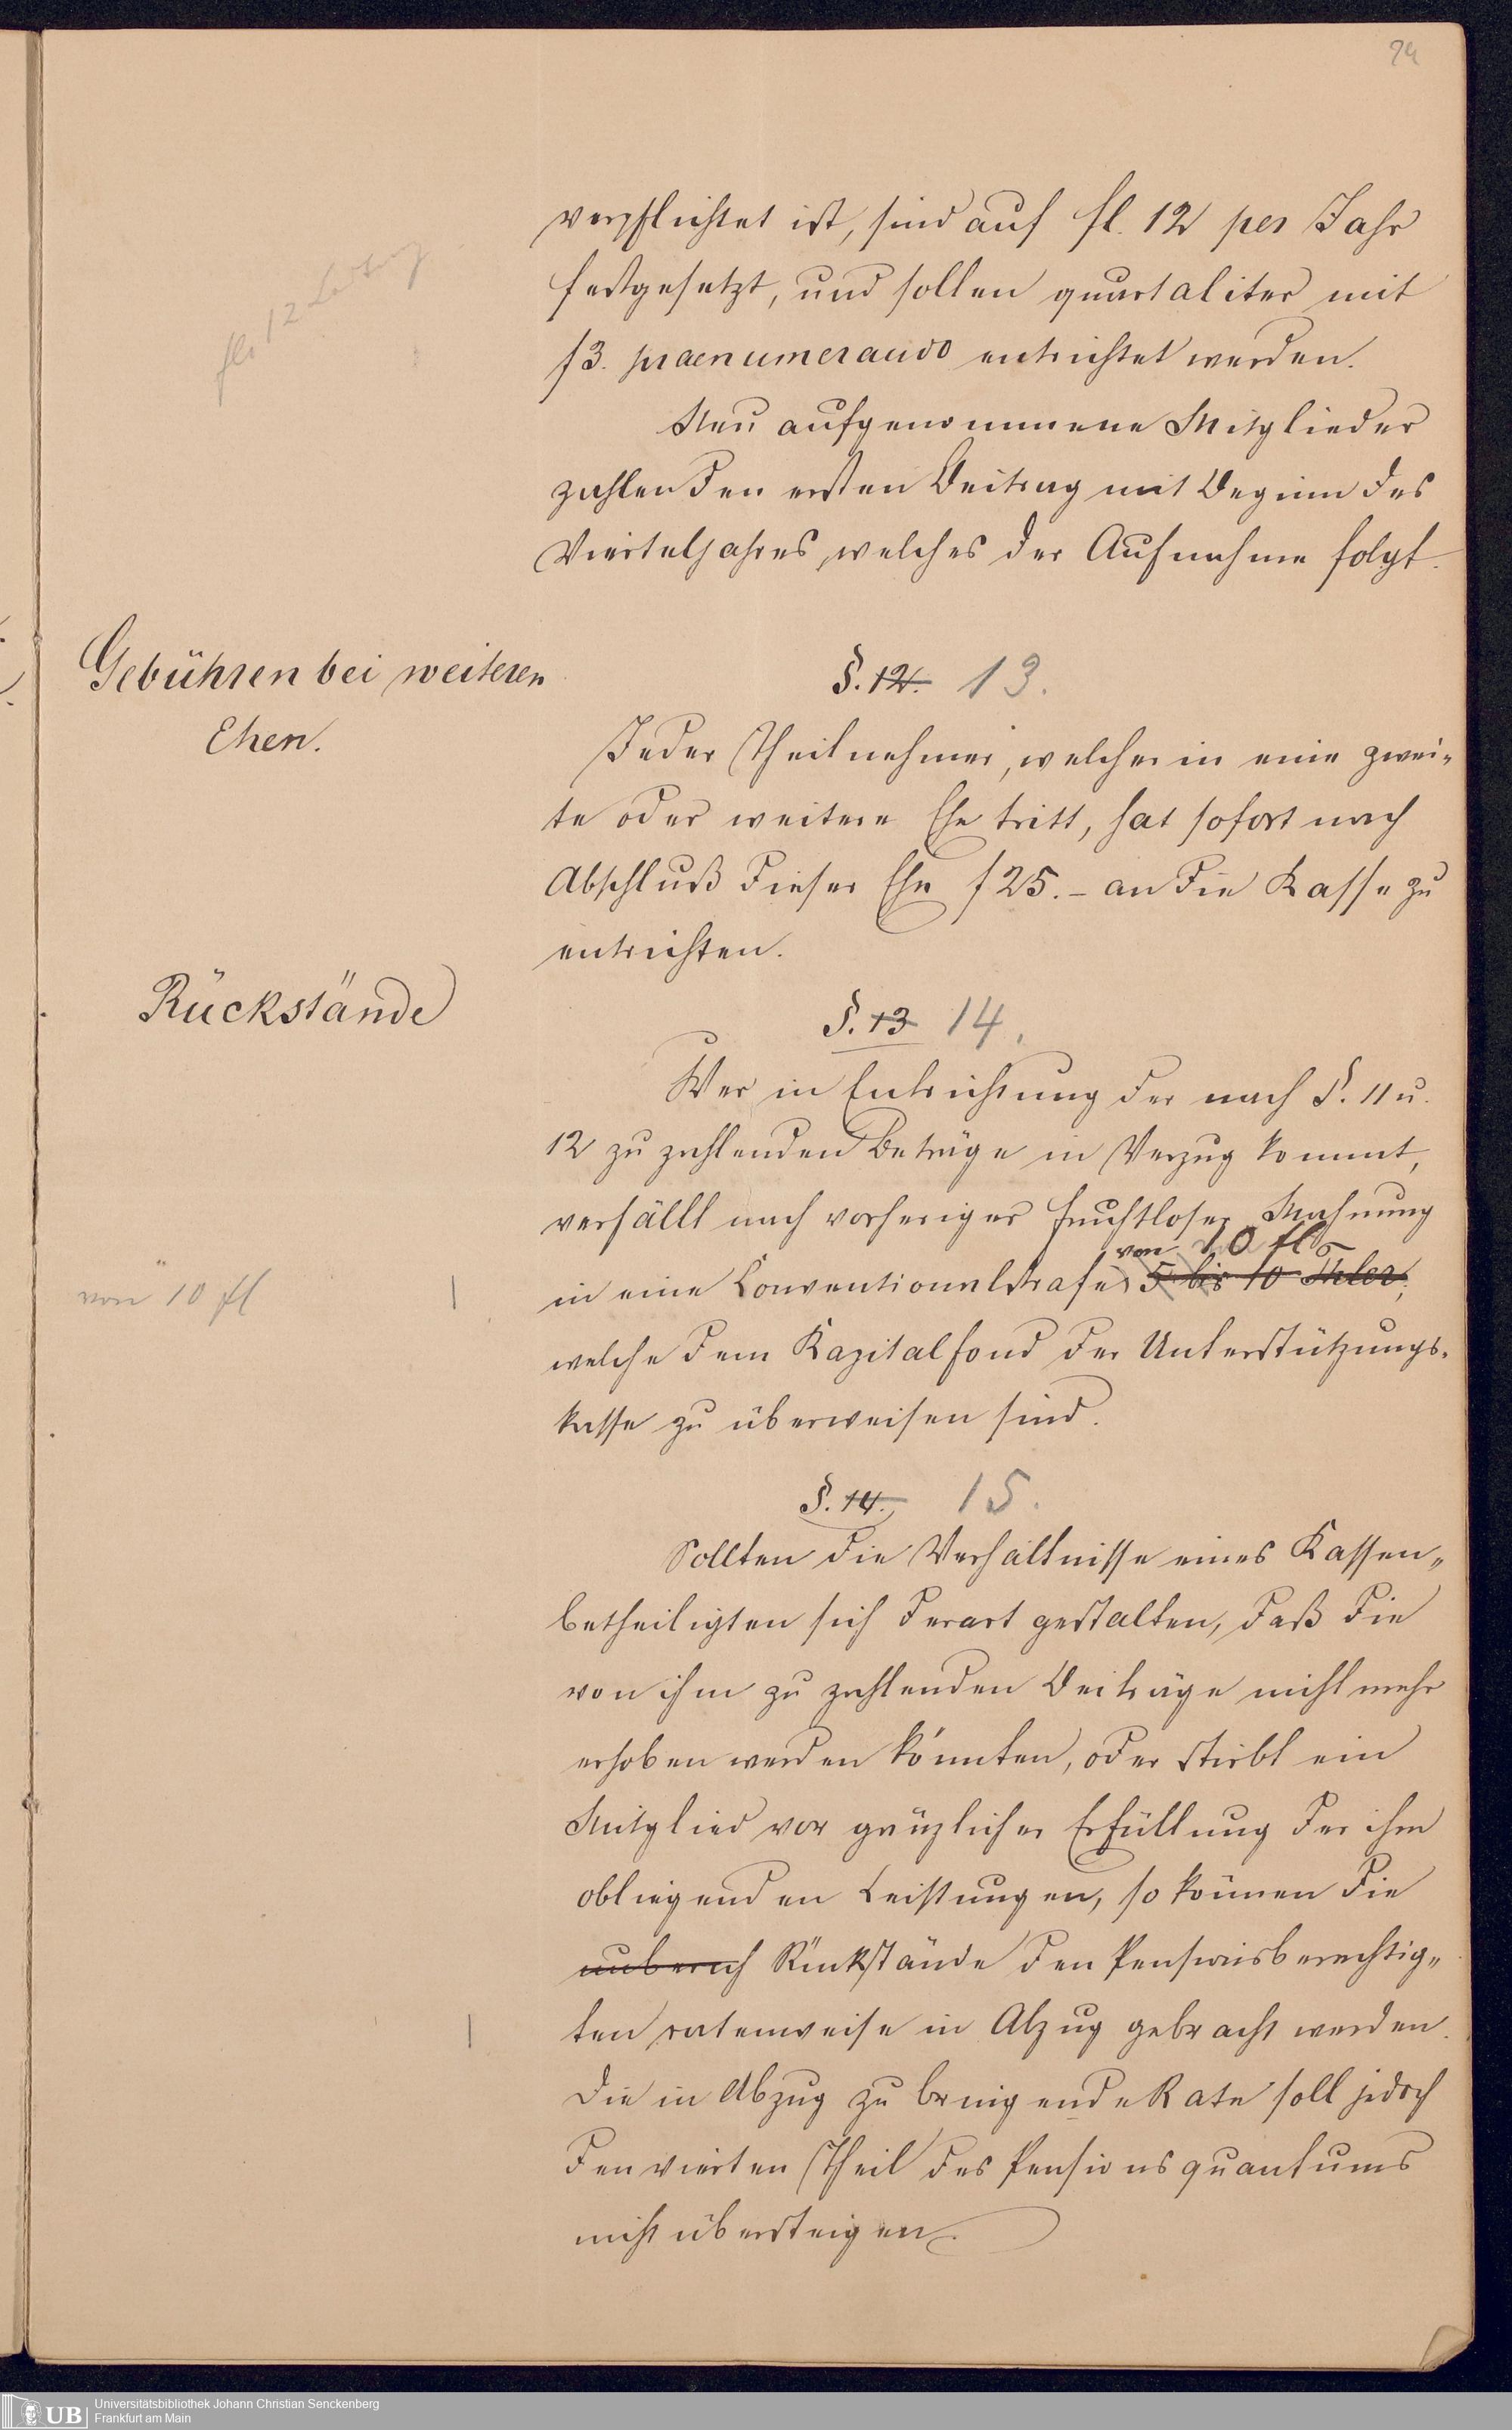 74
verpflichtet ist, sind auf fl. 12 per Jahr
festgesetzt, und sollen quartaliter mit
f 3. praenumerando entrichtet werden.
Neu aufgenommene Mitglieder
zahlen den ersten Beitrag mit Beginn des
Vierteljahres, welches der Aufnahme folgt.
Gebühren bei weiteren
Ehen.
§. 12. 13.
Jeder Theilnehmer, welcher in eine zwei-
te oder weitere Ehe tritt, hat sofort nach
Abschluß dieser Ehe f 25.- an die Kasse zu
entrichten.
Rückstände
§. 13 14.
Wer in Entrichtung der nach §. 11 u.
12 zu zahlenden Beträge in Verzug kommt,
verfällt nach vorheriger fruchtloser Mahnung
von 10 fl
von 10 fl
in eine Conventionalstrafe 5 bis 10 Thler,
welche dem Kapitalfond der Unterstützungs-
kasse zu überweisen sind.
§. 14. 15.
Sollten die Verhältnisse eines Kassen-
betheiligten sich derart gestalten, daß die
von ihm zu zahlenden Beiträge nicht mehr
erhoben werden könnten, oder stirbt ein
Mitglied vor gänzlicher Erfüllung der ihm
obliegenden Leistungen, so können die
Rückstände den Pensionsberechtig-
ten ratenweise in Abzug gebracht werden.
Die in Abzug zu bringende Rate soll jedoch
den vierten Theil des Pensionsquantums
nicht übersteigen.
UB
Universitätsbibliothek Johann Christian Senckenberg
Frankfurt am Main